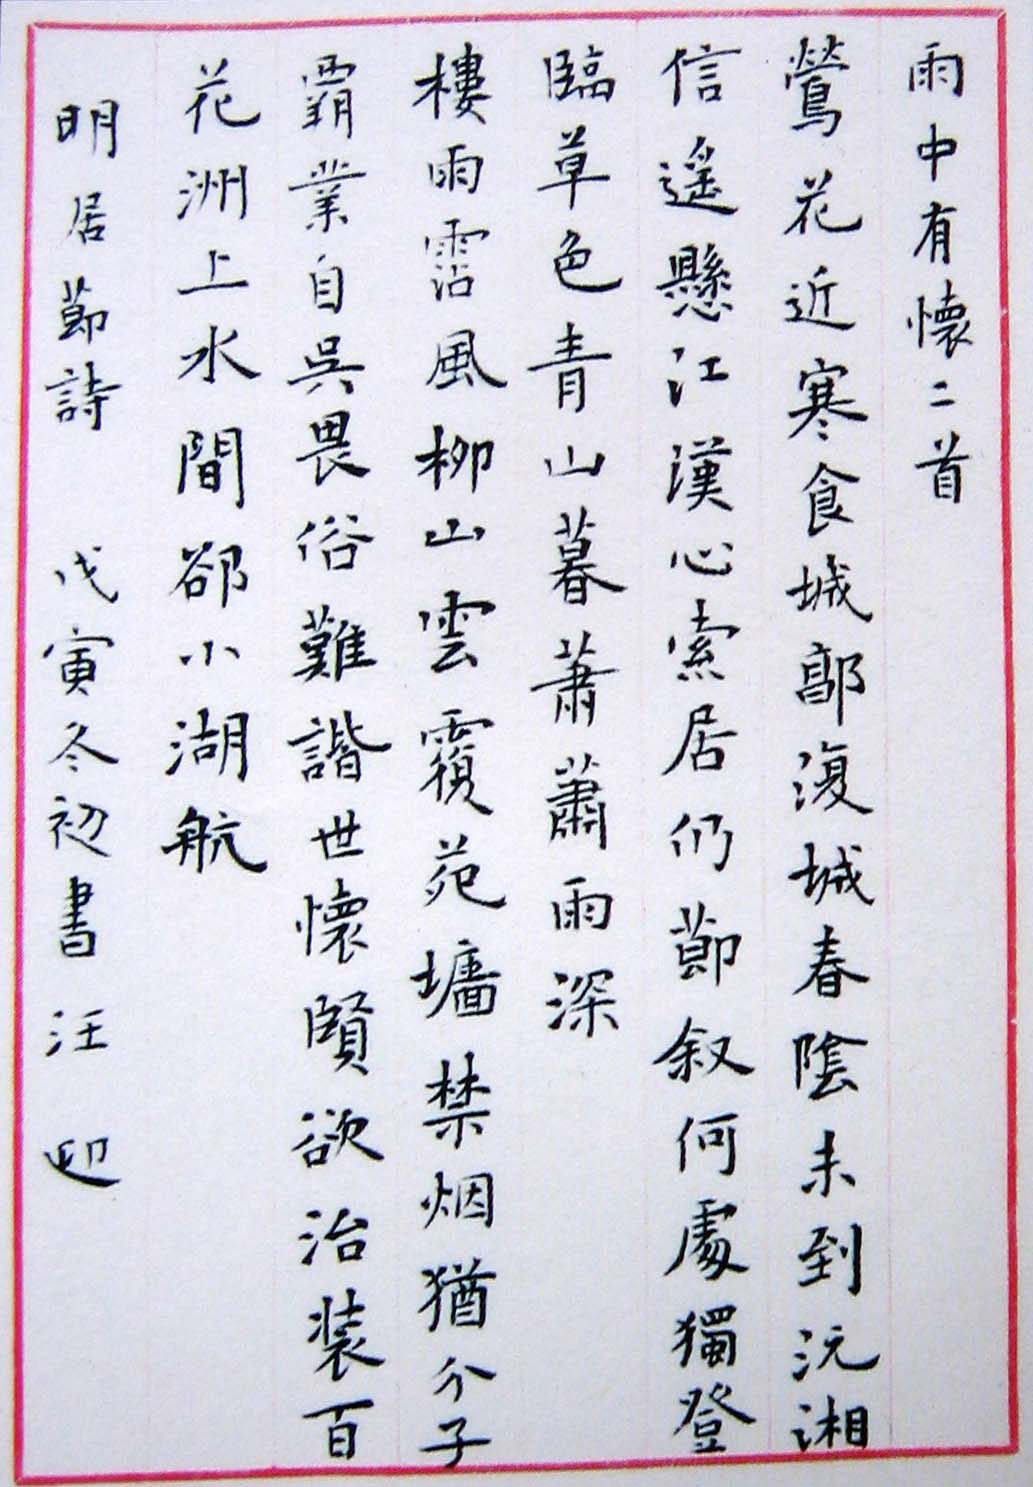 雨中有懷二首
鶯花近寒食城郭復城春陰未到沅湘
信遥懸江漢心索居仍節叙何處獨登
臨草色青山暮蕭蕭雨深
樓雨霑風柳山雲覆苑墻禁烟猶介子
霸業自吳畏俗難諧世懷賢欲治装百
花洲上水間郤小湖航
明居節詩 戊寅冬初書汪迎